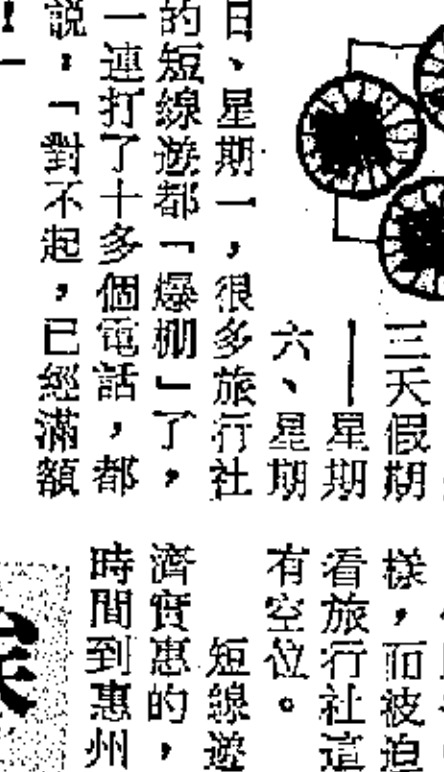 三天假期
——星期
六、星期
日、星期一,很多旅行社
的短線遊都「爆棚」了,
一連打了十多個電話,都
說:「對不起,已經滿額
!」
樣,而被迫
看旅行社這
有空位。
短線遊
濟實惠的,
時間到惠州